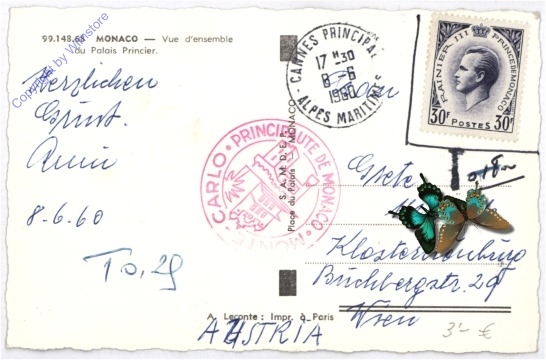 99.148.65 MONACO — Vue d'ensemble
du Palais Princier.
Copyright by Wienstore
Herzlichen
8-6-60
To, 29
CANNES PRINCIPAL
17 H 30
8 -6
1960
ALPES MARITIMES
RAINIER III PRINCE DE MONACO
30F POSTES 30F
PRINCIPAUTE DE MONACO
MONTE-CARLO
S.A.M.D.E.P.
Place du Palais MONACO
Grete
Klosterneuburg
Buchbergstr. 29
Wien
A. Leconte : Impr. à Paris
AUSTRIA
3'- €